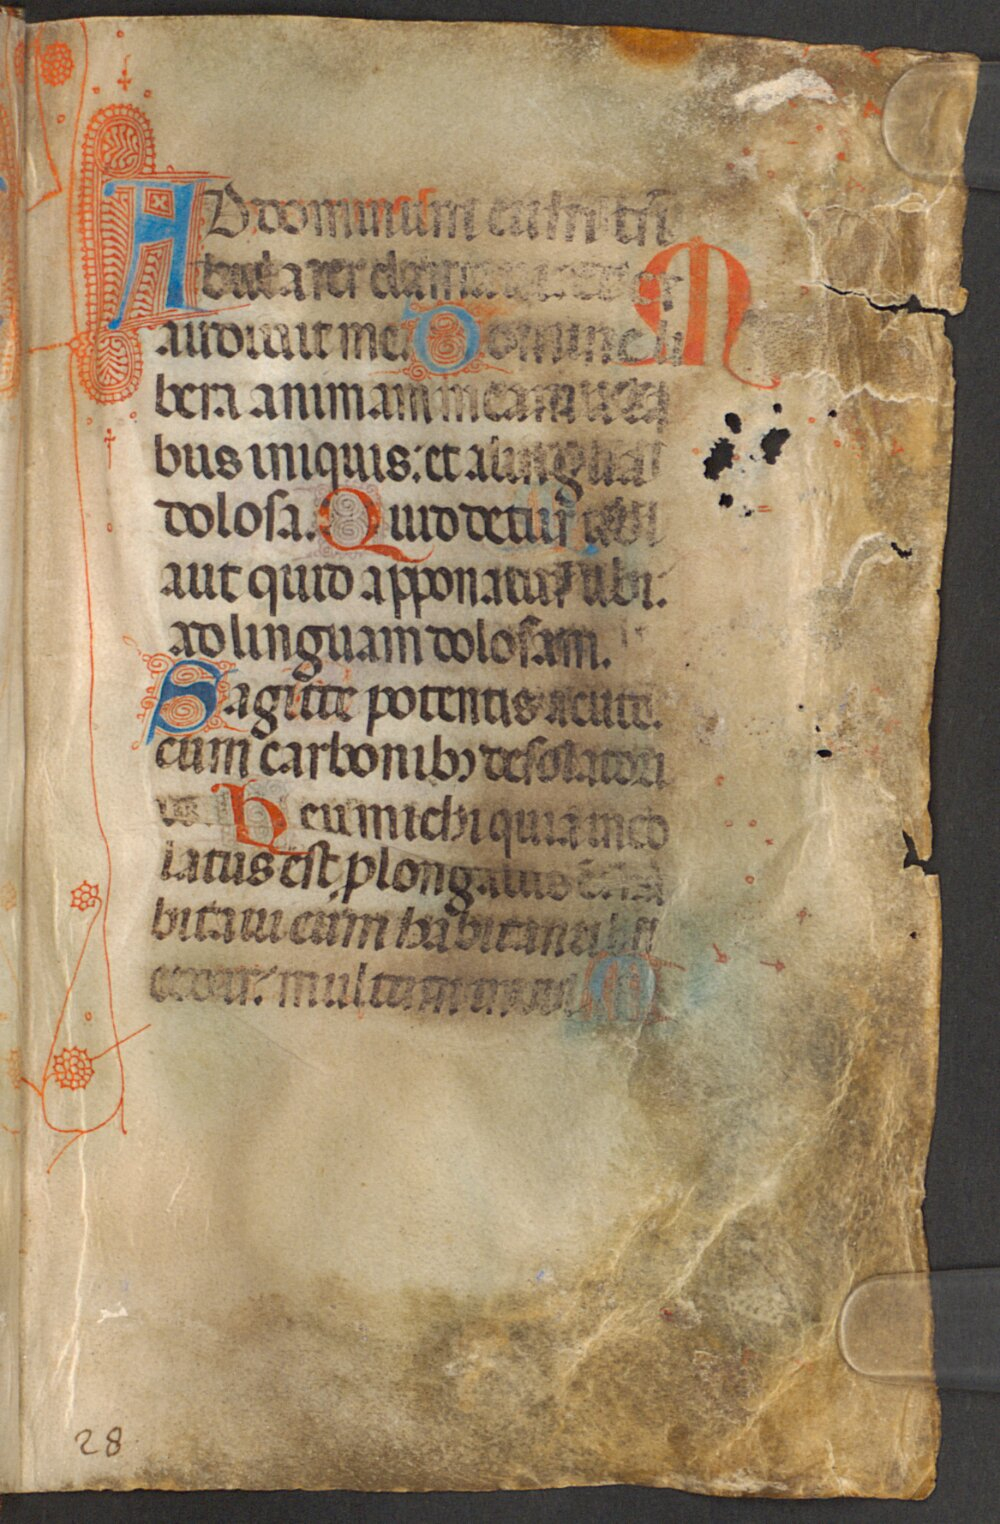 AD dominum cum tri
bularer clamavi et ex
audivit me. Domine li
bera animam meam
bus iniquis: et a lingua
dolosa. Quid detur tibi
aut quid apponatur tibi:
ad linguam dolosam.
Sagitte potentis acute.
cum carbonibꝫ desolatori
is. Heu michi quia inco
latus est plongatus
bitavi cum habitantibꝫ
cedar: multum
M
28